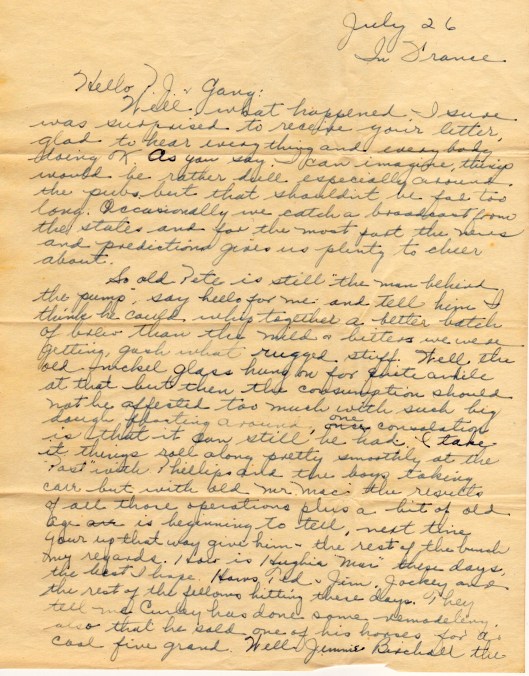 July 26
In France
Hello T.J. & Gang:
Well, what happened. I sure
was surprised to receive your letter,
glad to hear everything and everybody
doing OK. As you say. I can imagine, things
would be rather dull especially around
the pubs, but that shouldn't be for too
long. Occasionally we catch a broadcast from
the states and for the most part the news
and predictions gives us plenty to cheer
about.
So old Pete is still "the man behind
the pump", say hello for me and tell him I
think he could whip together a better batch
of brew than the mild & bitters we were
getting, gosh what rugged stuff. Well the
old nickel glass hung on for quite awhile
at that but then the consumption should
not be affected too much with such big
dough floating around, one consolation
is that it can still be had. I take
it things roll along pretty smoothly at the
"Post" with Phillips and the boys taking
care but with old Mr. Mac the results
of all those operations plus a bit of old
age is beginning to tell, next time
your up that way give him & the rest of the bunch
my regards. How is Hughie these days,
the best I hope. Hows Ted & Jim, Jockey and
the rest of the fellows hitting these days. They
tell me Curley has done some remodeling,
also that he sold one of his houses for a
cool five grand. Well Jimmie the